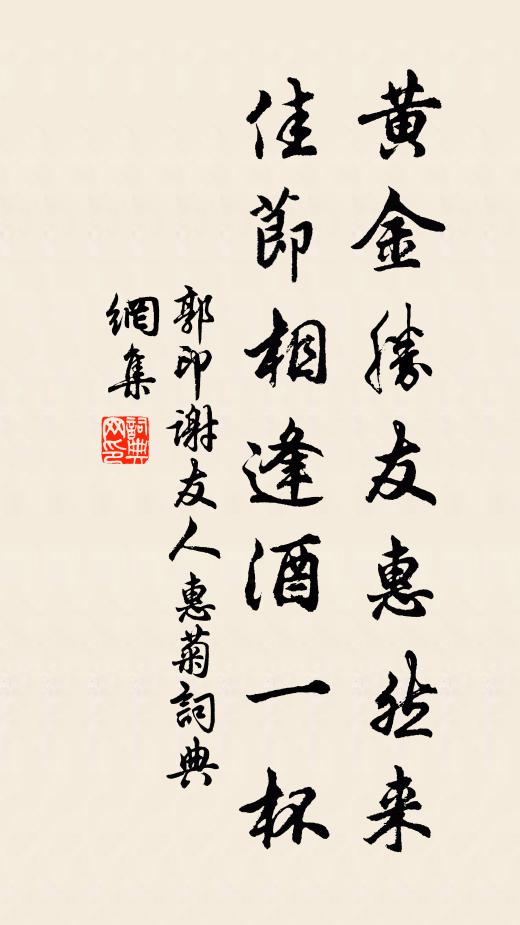 黄金勝友惠然来
佳節相逢酒一杯
郭印謝友人惠菊詞典
網集
詞典
网印